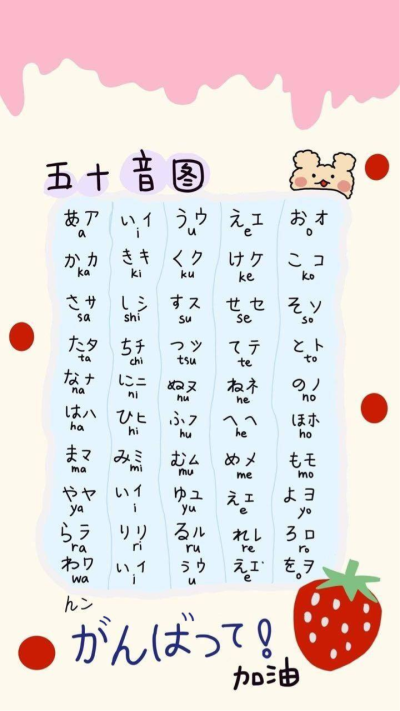 五十音图
あア いイ うウ えエ おオ
a i u e o
かカ きキ くク けケ こコ
ka ki ku ke ko
さサ しシ すス せセ そソ
sa shi su se so
たタ ちチ つツ てテ とト
ta chi tsu te to
なナ にニ ぬヌ ねネ のノ
na ni nu ne no
はハ ひヒ ふフ へヘ ほホ
ha hi hu he ho
まマ みミ むム めメ もモ
ma mi mu me mo
やヤ いイ ゆユ えエ よヨ
ya i yu e yo
らラ りリ るル れレ ろロ
ra ri ru re ro
わワ いイ うウ えエ をヲ
wa i u e o
んン
がんばって!
加油